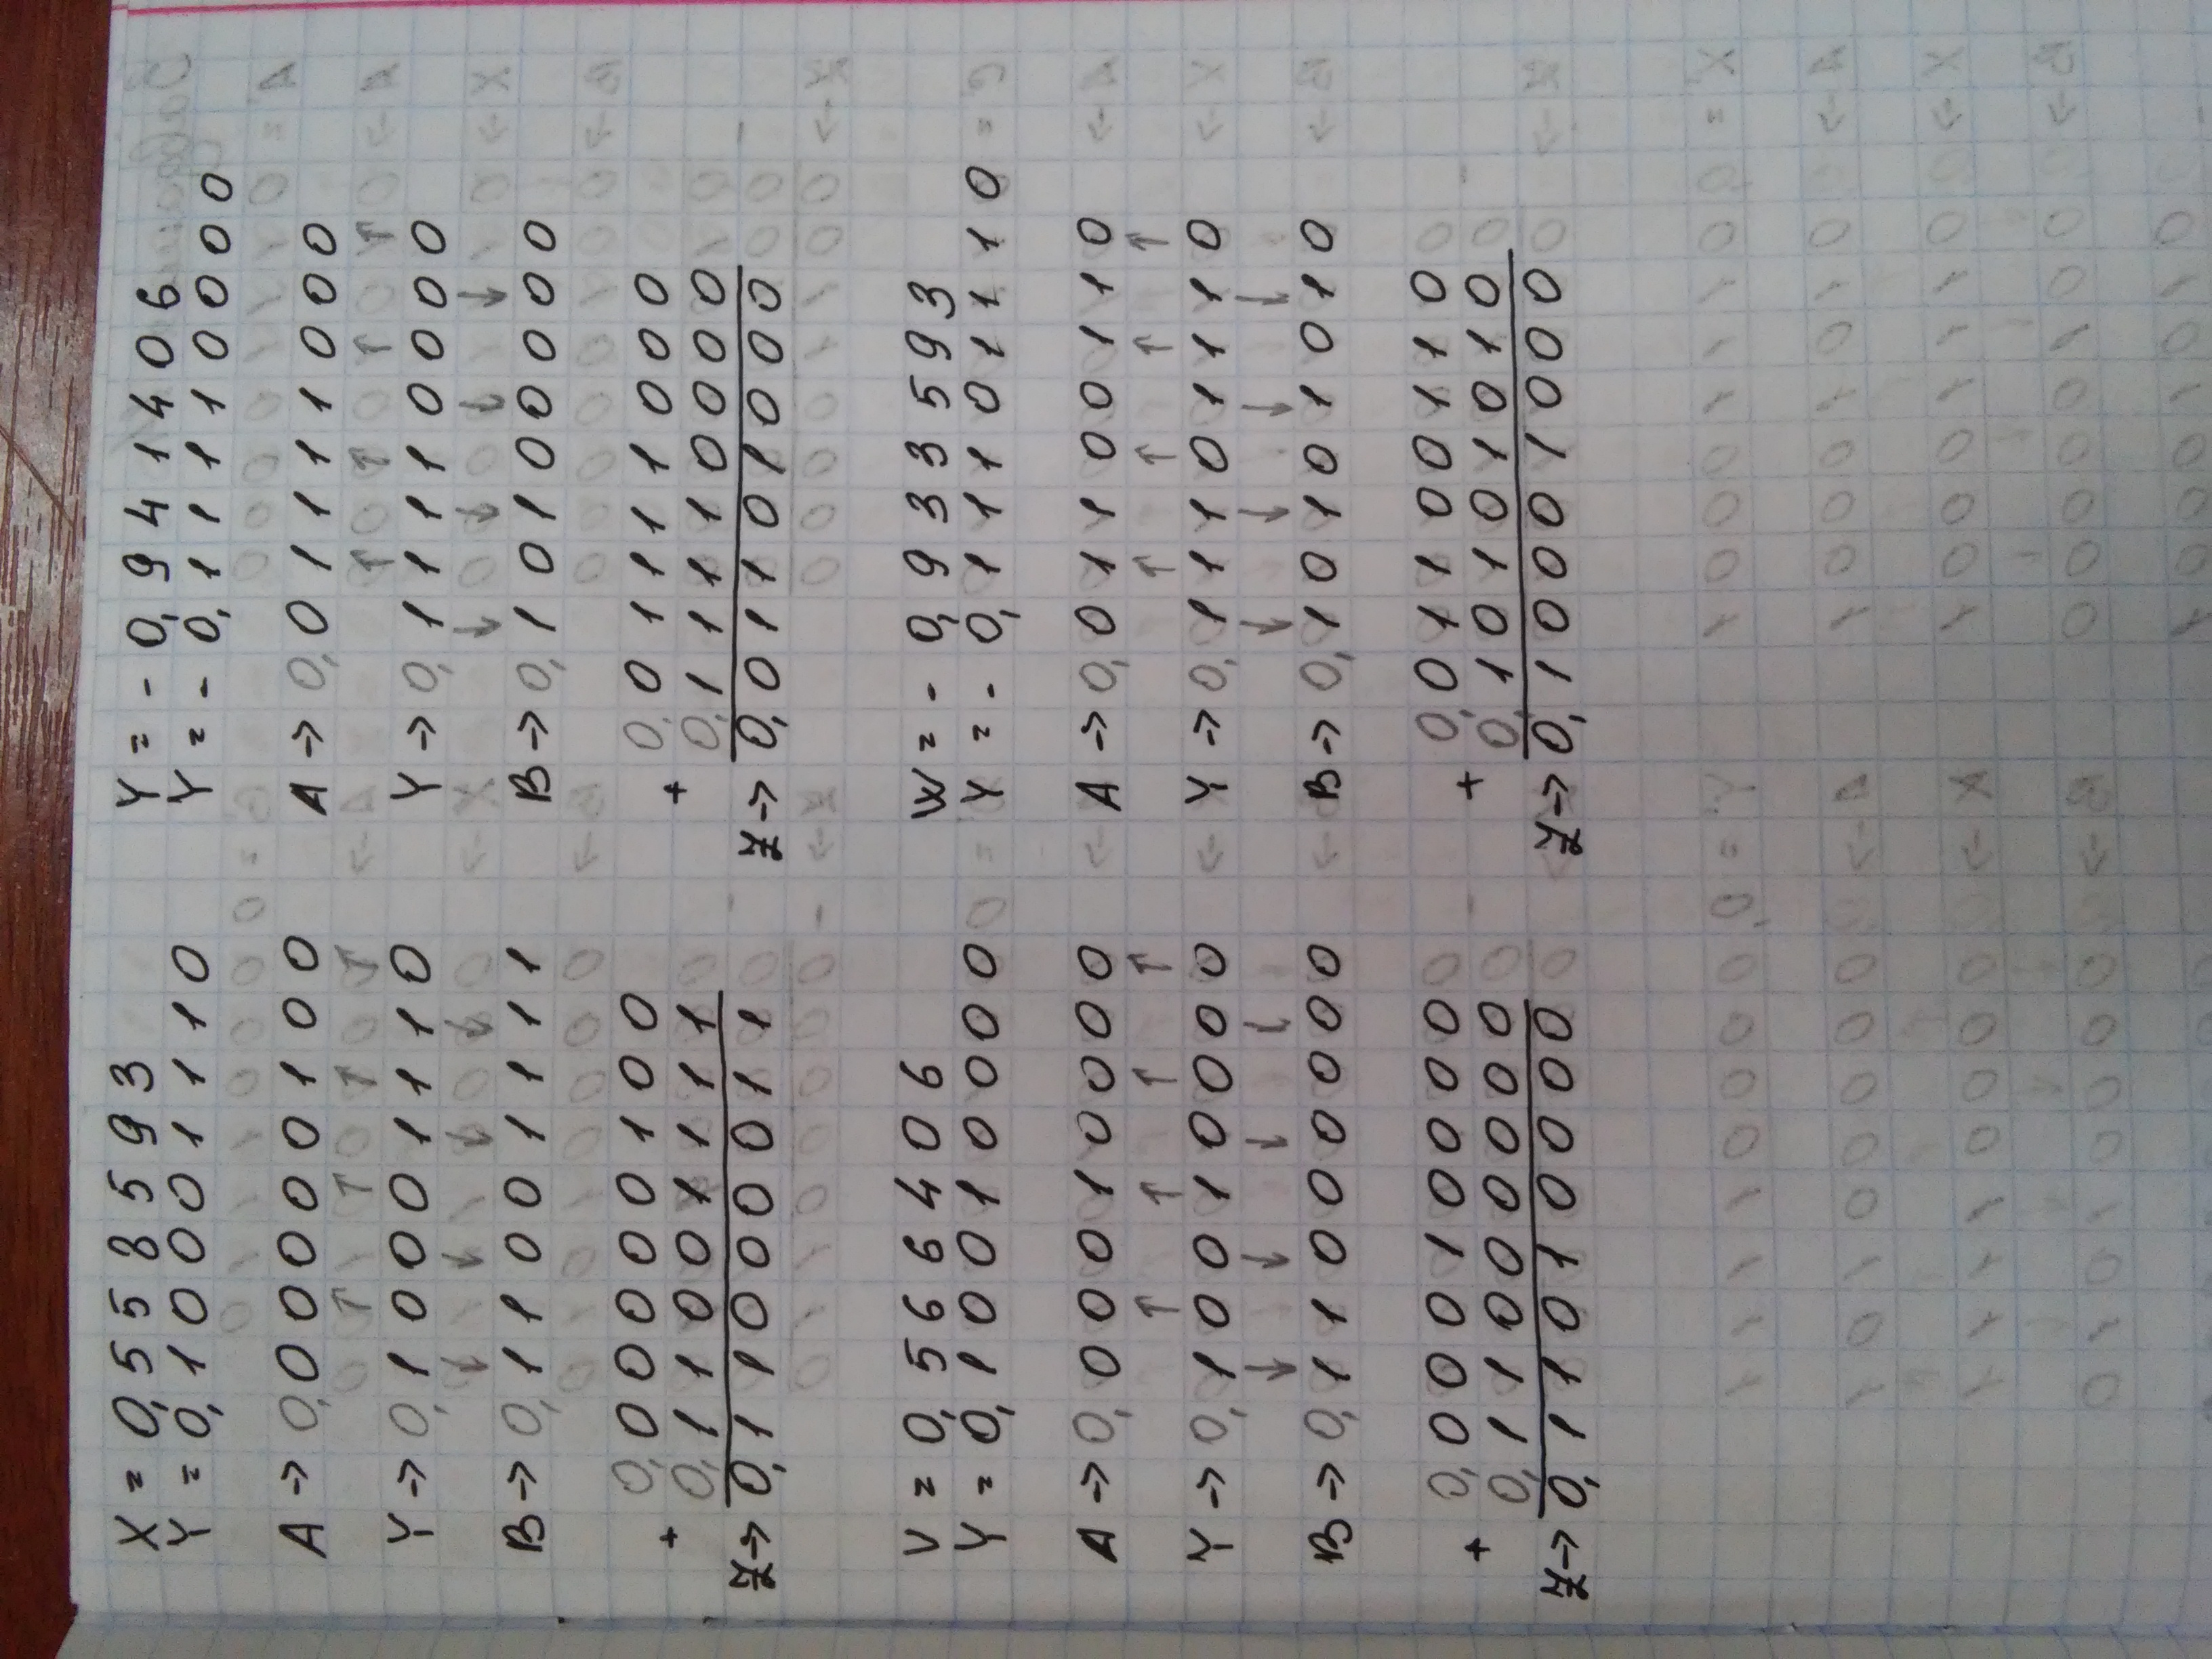 X = 0,558593
Y = 0,10001110
A → 0,00000100
Y → 0,10001110
B → 0,11001111
0,00000100
+
0,11001111
Z → 0,11000011
Y = - 0,941406
Y = - 0,11110000
A → 0,01111000
Y → 0,11110000
B → 0,10100000
0,01111000
+
0,11110000
Z → 0,01101000
V = 0,566406
Y = 0,10010000
A → 0,00010000
Y → 0,10010000
B → 0,11000000
0,00010000
+
0,11000000
Z → 0,11010000
W = - 0,933593
Y = - 0,11101110
A → 0,01100110
Y → 0,11101110
B → 0,10101010
0,01100110
+
0,10101010
Z → 0,10001000